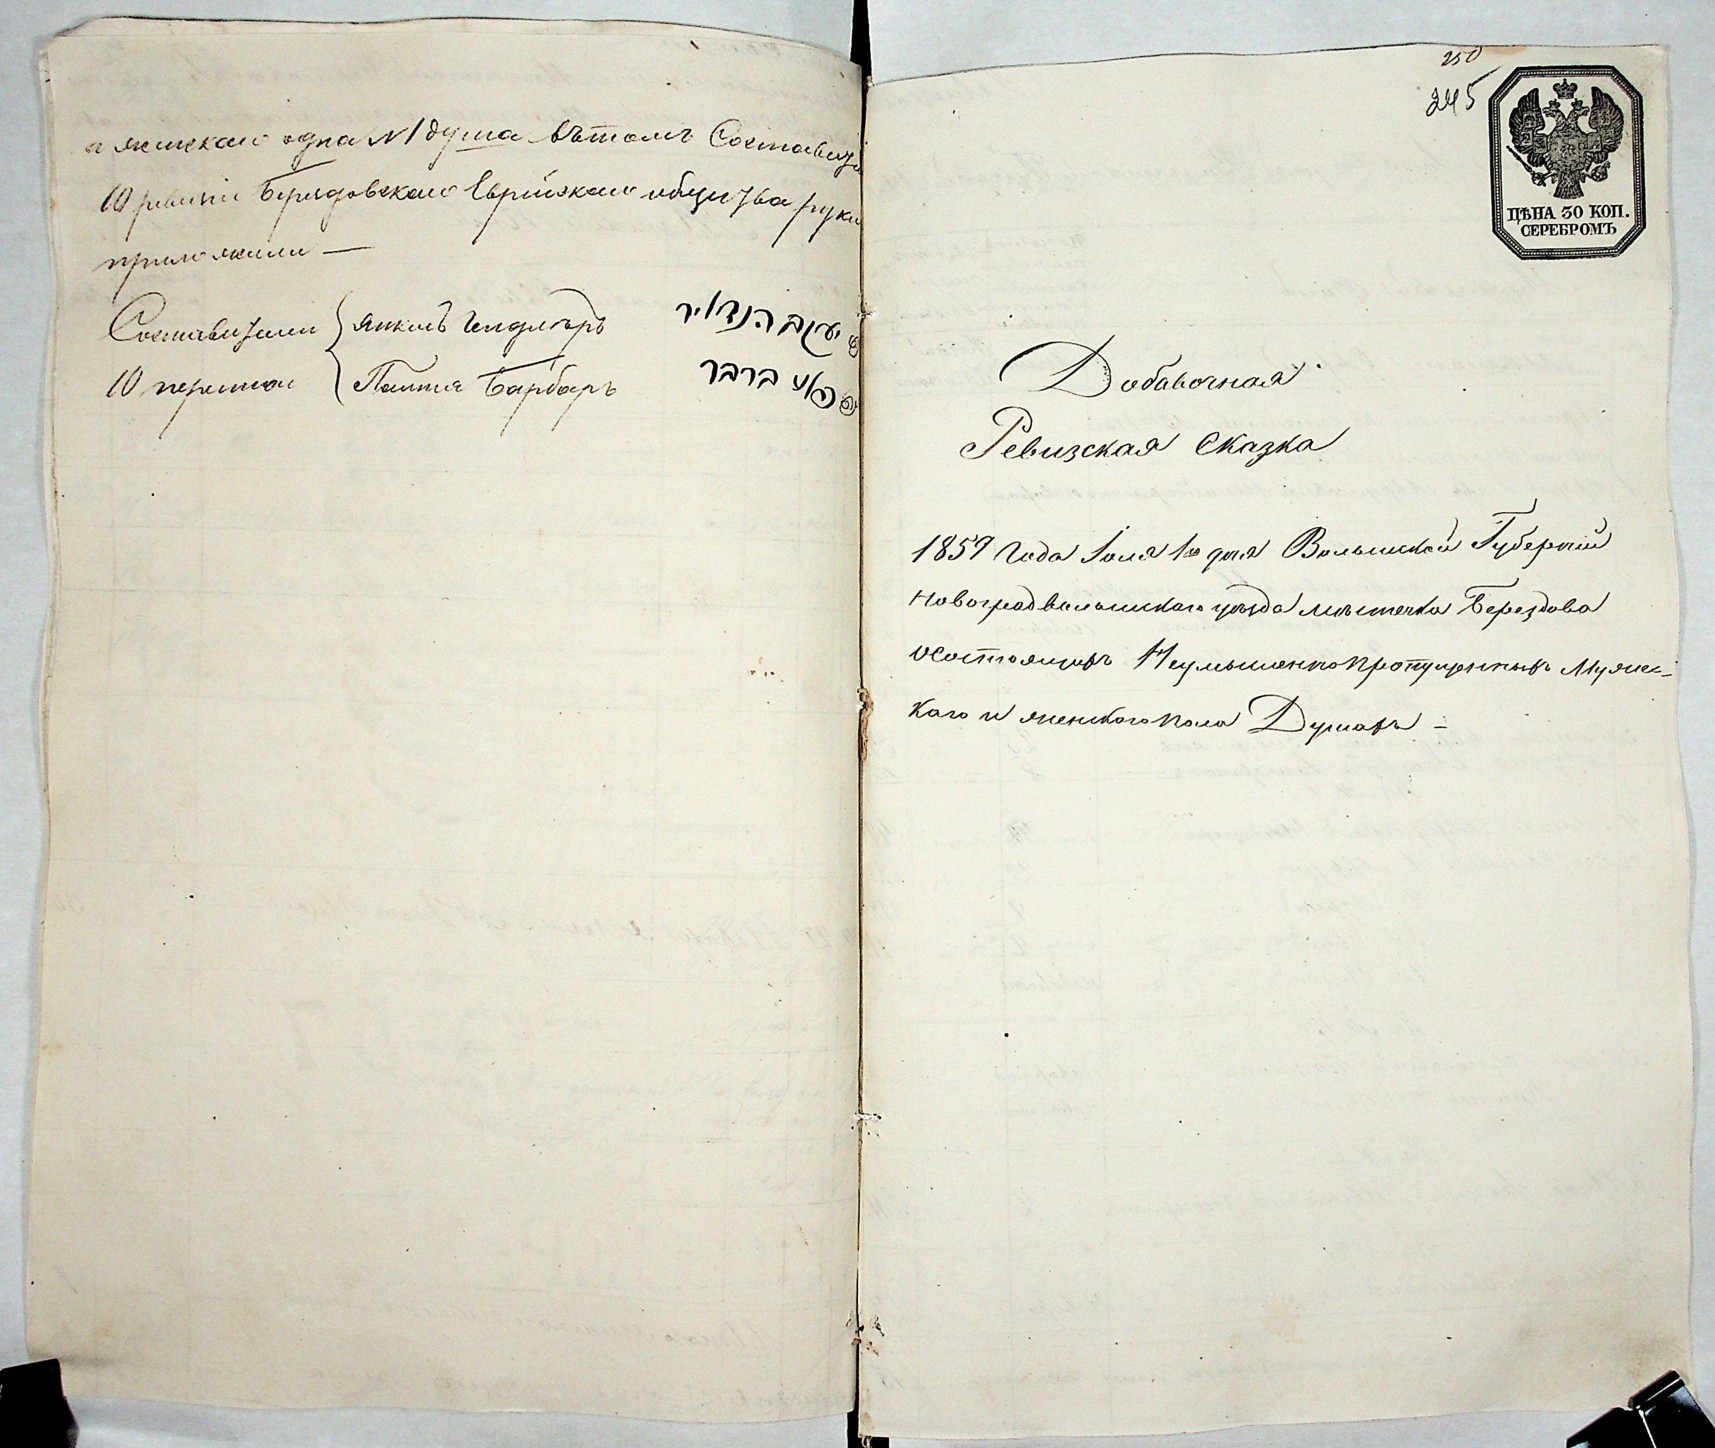 а женскаго одна №1 душа вътомъ Составители
10 ревизіи Берездовскаго Еврейскаго общества руки
приложили —
Составители Янкель Гендлеръ יעקב הנדליר
10 переписи Барбаръ ברבר
250
245
ЦѢНА 30 КОП.
СЕРЕБРОМЪ
Добавочная
Ревизская Сказка
1859 года Іюля 1го дня Волынской Губерніи
Новоградволынскаго уѣзда мѣстечка Берездова
осостоящихъ Неумышленно пропущенныхъ Мужес-
каго и женскаго пола Душахъ —